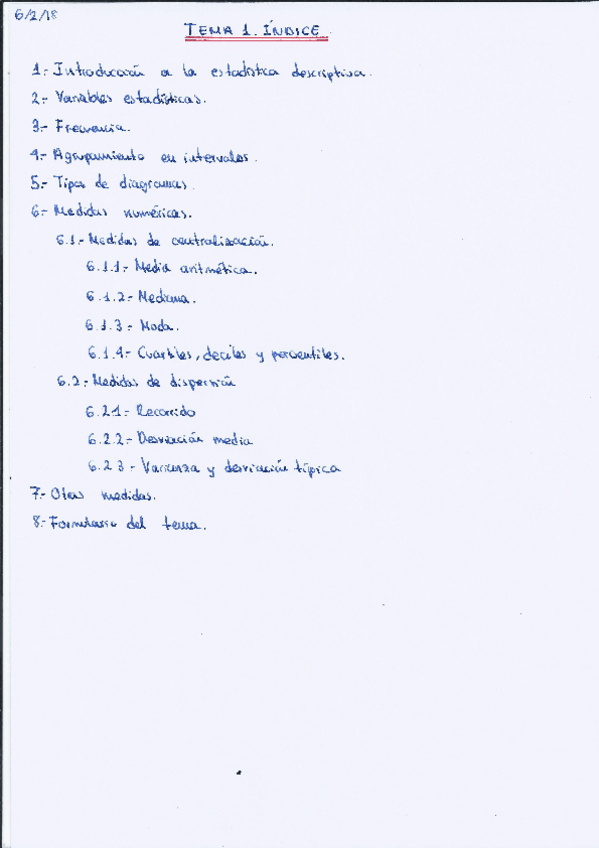 6/2/18
TEMA 1. ÍNDICE.
1.- Introducción a la estadística descriptiva.
2.- Variables estadísticas.
3.- Frecuencia.
4.- Agrupamiento en intervalos.
5.- Tipos de diagramas.
6.- Medidas numéricas.
6.1.- Medidas de centralización.
6.1.1.- Media aritmética.
6.1.2.- Mediana.
6.1.3.- Moda.
6.1.4.- Cuartiles, deciles y percentiles.
6.2.- Medidas de dispersión
6.2.1.- Recorrido
6.2.2.- Desviación media
6.2.3.- Varianza y desviación típica
7.- Otras medidas.
8.- Formulario del tema.